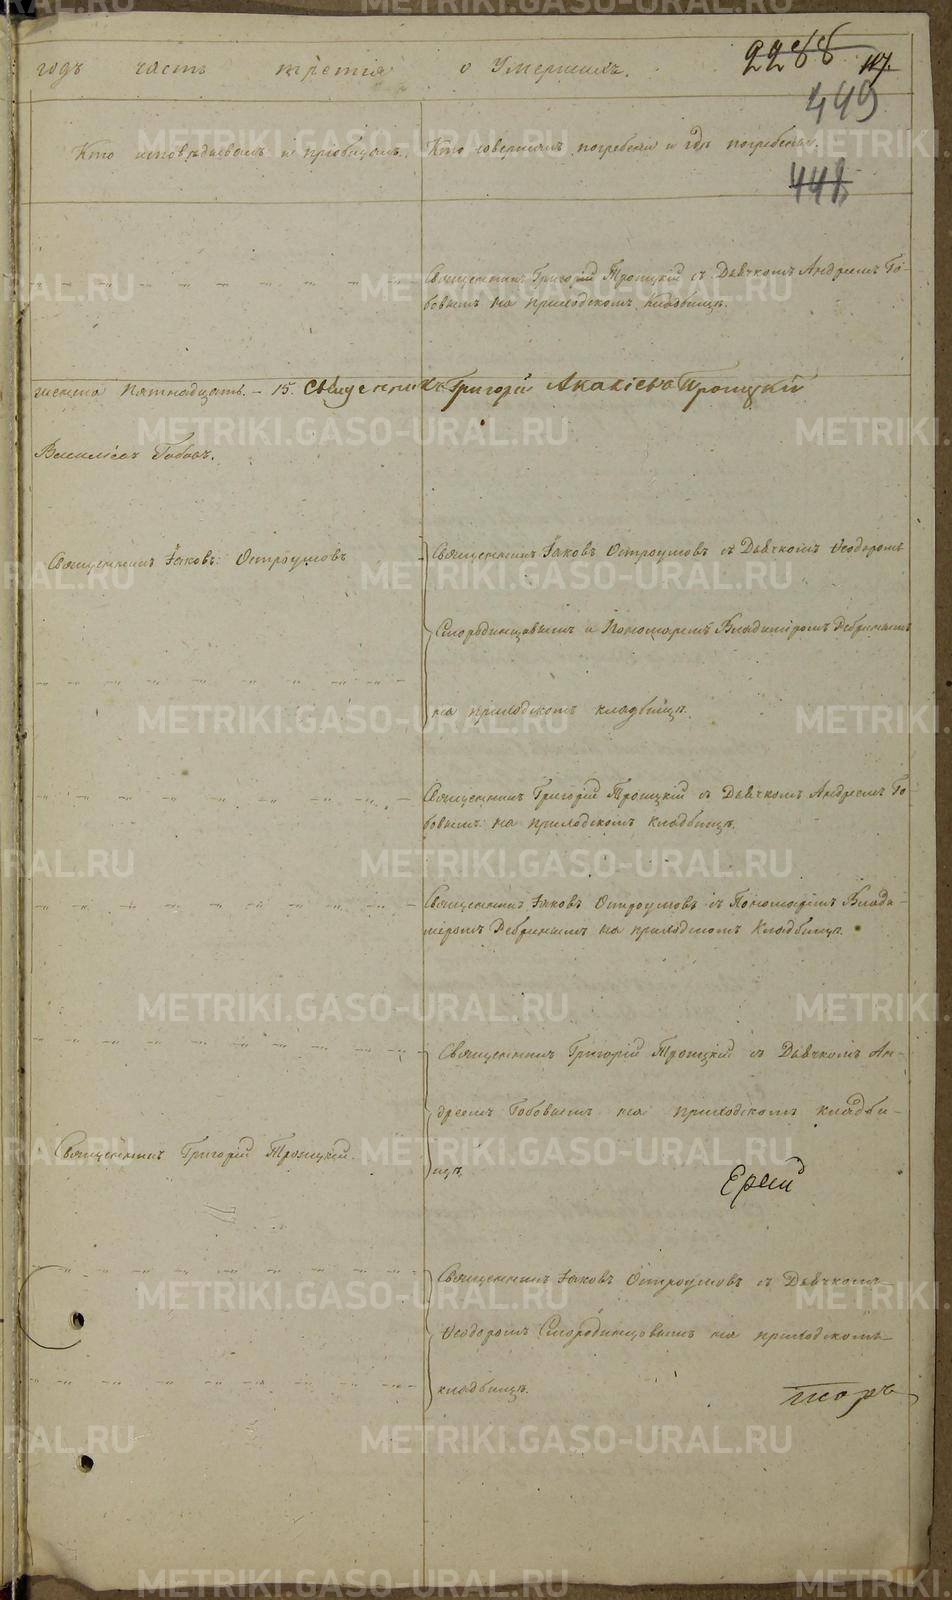 годъ часть третія о Умершихъ.
2288 117.
449
448
Кто исповѣдывалъ и пріобщалъ.
Кто совершалъ погребеніе и гдѣ погребены.
Священникъ Григорій Троицкій съ Дьячкомъ Андреемъ Го-
бовымъ на приходскомъ кладбищѣ.
женска пятнадцать. - 15. Священникъ Григорій Акакіевъ Троицкій
Василіевъ Гобовъ.
Священникъ Іаковъ Остроумовъ
Священникъ Іаковъ Остроумовъ съ Дьячкомъ Ѳеодоромъ
Смородинцовымъ и Пономаремъ Владиміромъ Дебринымъ
на приходскомъ кладбищѣ.
Священникъ Григорій Троицкій съ Дьячкомъ Андреемъ Го-
бовымъ на приходскомъ кладбищѣ.
Священникъ Іаковъ Остроумовъ съ Пономаремъ Влади-
миромъ Дебринымъ на приходскомъ кладбищѣ.
Священникъ Григорій Троицкій съ Дьячкомъ Ан-
дреемъ Гобовымъ на приходскомъ кладби-
щѣ.
Священникъ Григорій Троицкій.
Ерей
Священникъ Іаковъ Остроумовъ съ Дьячкомъ
Ѳеодоромъ Смородинцовымъ на приходскомъ
кладбищѣ.
METRIKI.GASO-URAL.RU